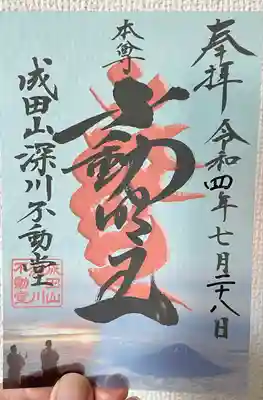 奉拝 令和四年七月二十八日
本尊
不動明王
成田山深川不動堂
成田山
深川
不動堂